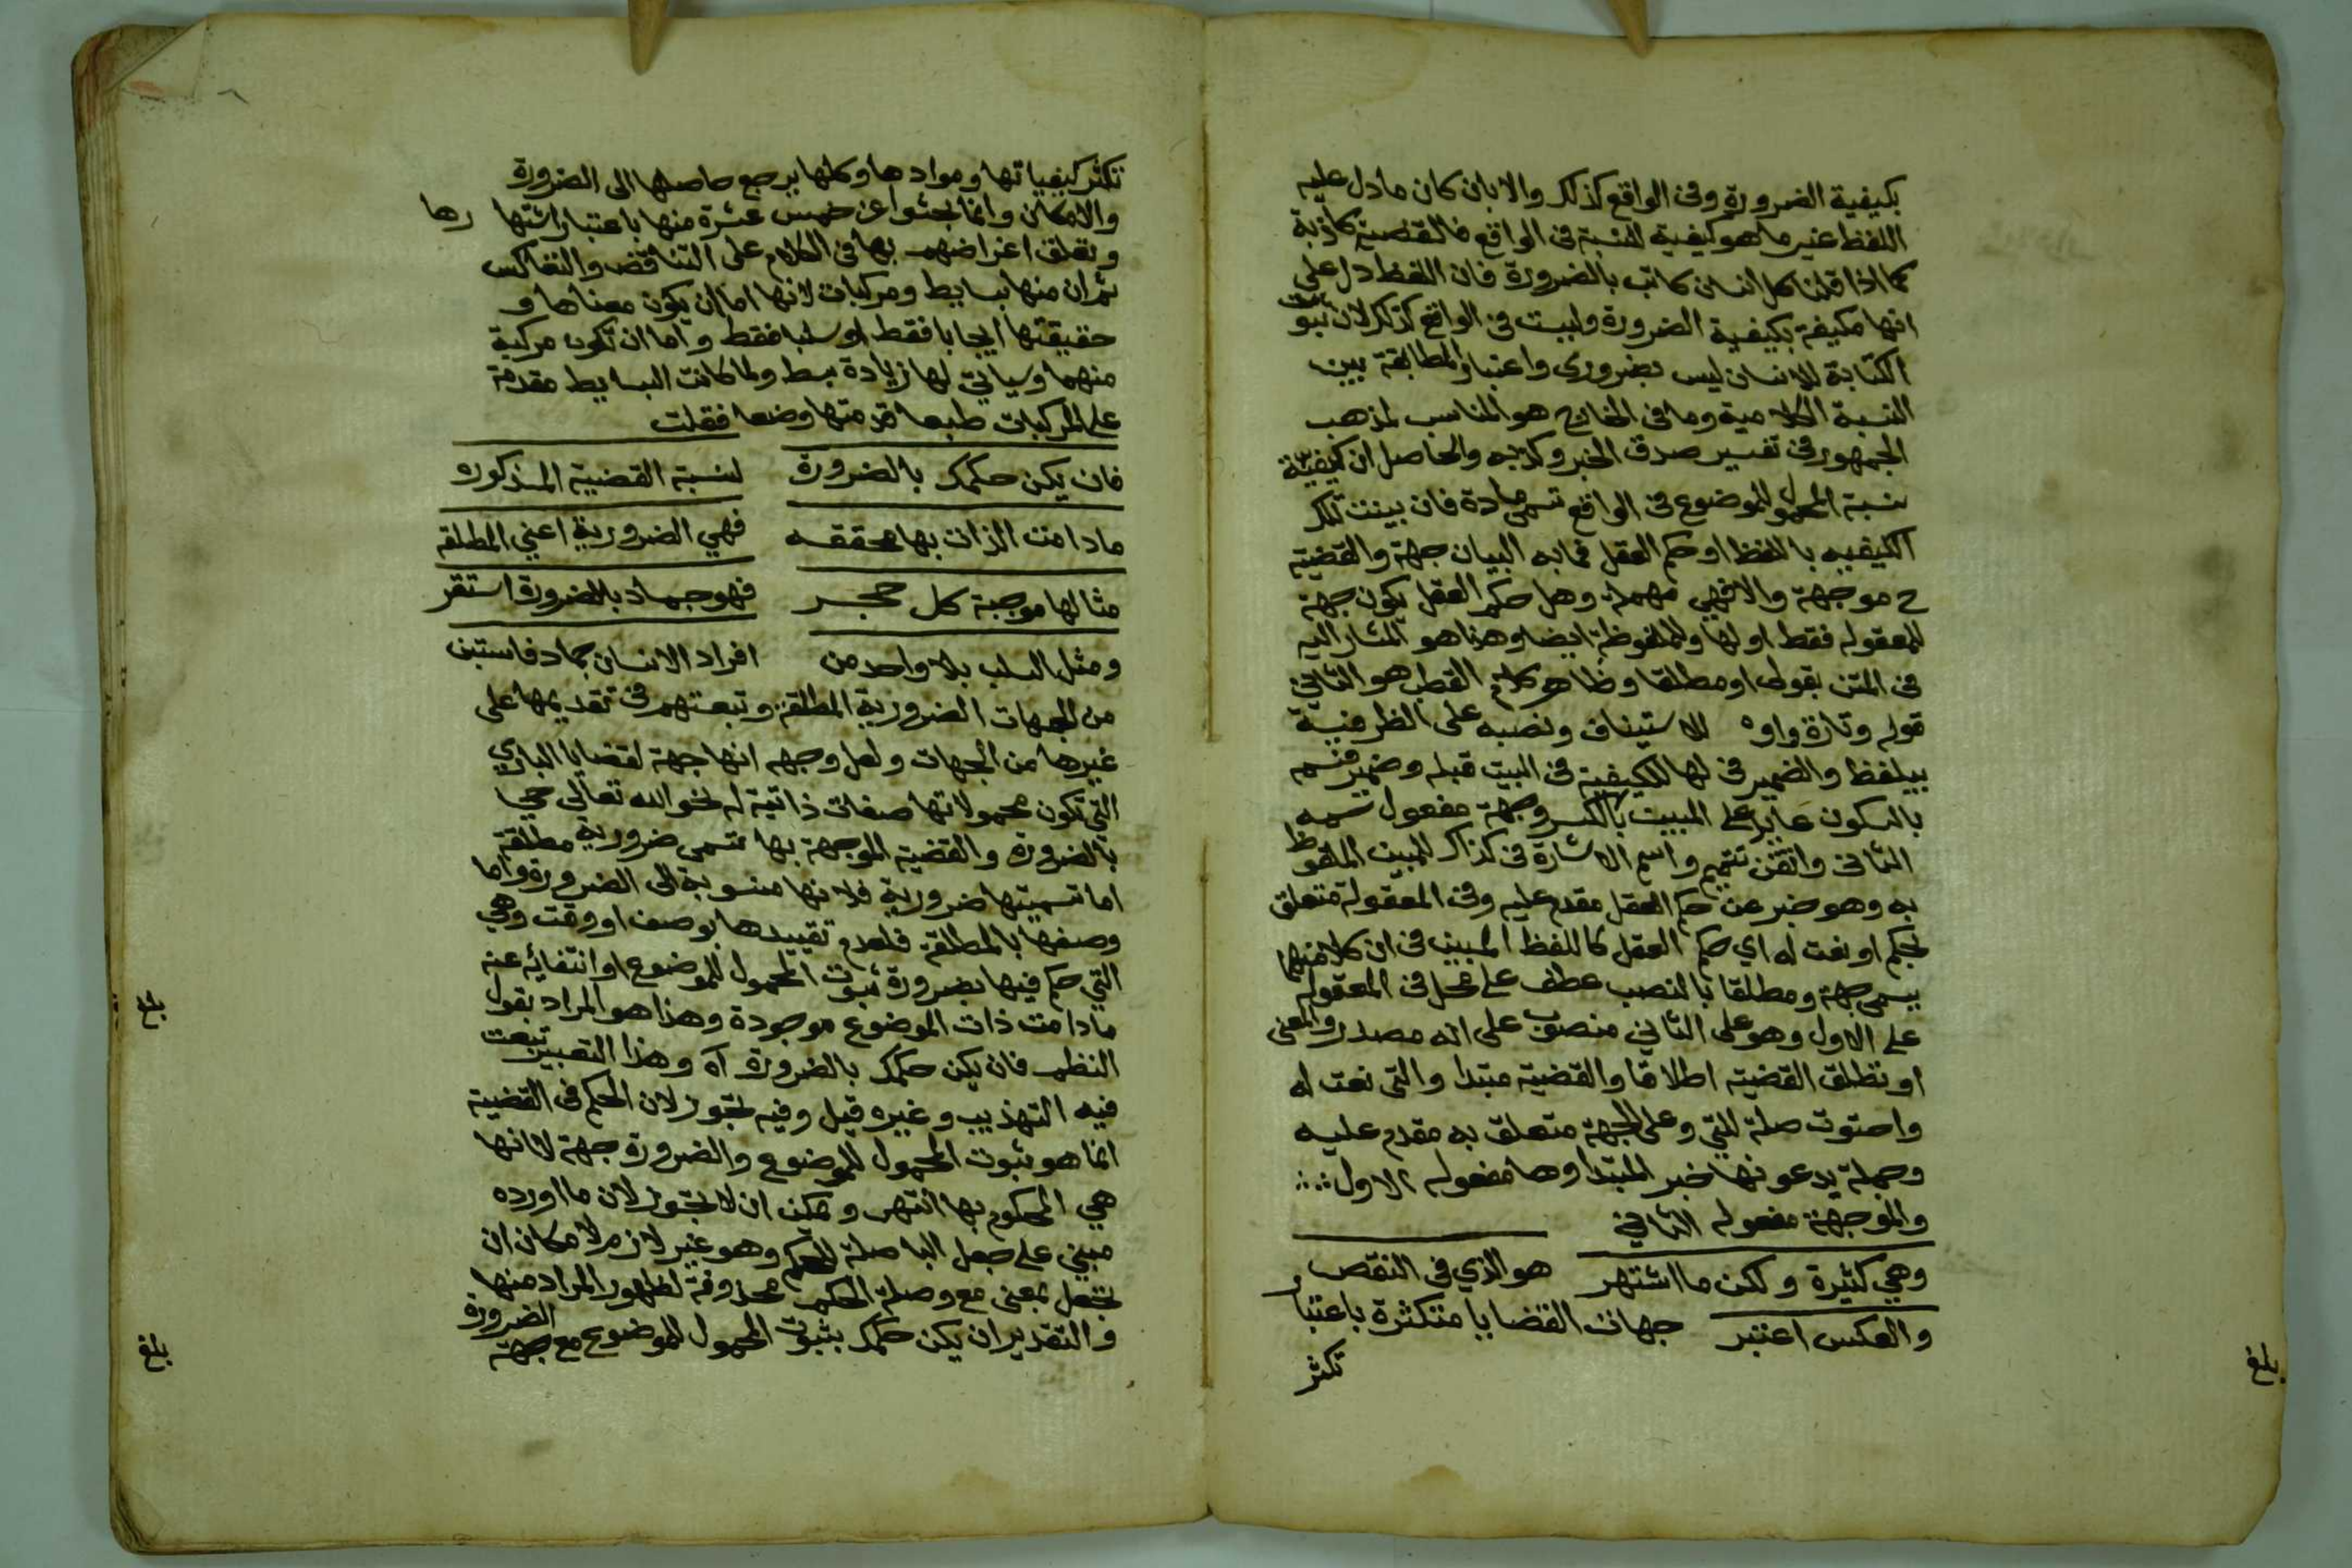 بكيفية الضرورة وفى الواقع كذلك والا بان كان مادل عليه
اللفظ غير ما هو كيفية للنسبة فى الواقع فالقضية كاذبة
كما اذا قلنا كل انسان كاتب بالضرورة فان اللفظ دل على
انها مكيفة بكيفية الضرورة وليست فى الواقع كذلك لان ثبوت
الكتابة للانسان ليس بضرورى واعتبار المطابقة بين
النسبة الكلامية وما فى الخارج هو المناسب لمذهب
الجمهور فى تفسير صدق الخبر وكذبه والحاصل ان كيفية
نسبة المحمول للموضوع فى الواقع تسمى مادة فان بينت تلك
الكيفيه باللفظ او حكم العقل فما به البيان جهة والقضية
ح موجهة والا فهي مهملة وهل حكم العقل يكون جهة
للمعقوله فقط او لها وللملفوظة ايضا وهذا هو المشار اليه
فى المتن بقولى او مطلقا وظاهر كلام القطب هو الثاني
قوله وتارة واوه للاستيناف ونصبه على الظرفية
بيلفظ والضمير فى لها للكيفية فى البيت قبله وضمير فسمه
بالسكون عايد على المبيت بالكسر وجهة مفعول سمه
الثانى واتقن تتميم واسم الاشارة فى كذاك للمبين الملفوظ
به وهو خبر عن حكم العقل مقدم عليه وفى المعقولة متعلق
بحكم او نعت له اي حكم العقل كاللفظ المبين فى ان كلا منهما
يسمى جهة ومطلقا بالنصب عطف على محل فى المعقوله
على الاول وهو على الثاني منصوب على انه مصدر والمعنى
او تطلق القضية اطلاقا والقضية مبتدا والتى نعت له
واحتوت صلة للتي وعلى الجهة متعلق به مقدم عليه
وجملة يدعونها خبر المبتدا وها مفعوله الاول
والموجهة مفعوله الثاني
وهي كثيرة ولكن ما اشتهر هو الذي فى النقص
والعكس اعتبر جهات القضايا متكثرة باعتبار
تكثر
بلغ
تكثر كيفياتها وموادها وكلها يرجع حاصلها الى الضرورة
والامكان وانما بحثوا عن خمس عشرة منها باعتبار اشتهارها
وتعلق اغراضهم بها فى الكلام على التناقض والتعاكس
ثم ان منها بسايط ومركبات لانها اما ان يكون معناها و
حقيقتها ايجابا فقط او سلبا فقط واما ان تكون مركبة
منهما وسياتي لها زيادة بسط ولما كانت البسايط مقدمة
على المركبات طبعا قدمتها وضعا فقلت
فان يكن حكمك بالضرورة لنسبة القضية المذكوره
مادامت الذات بها محققه فهي الضرورية اعني المطلقه
مثالها موجبة كل حجر فهو جماد بالضرورة استقر
ومثل السلب بلا واحد من افراد الانسان جماد فاستبن
من الجهات الضرورية المطلقة وتبعتهم فى تقديمها على
غيرها من الجهات ولعل وجهه انها جهة لقضايا الباري
التي تكون محمولاتها صفات ذاتية له نحو الله تعالى حي
بالضرورة والقضية الموجهة بها تسمى ضرورية مطلقة
اما تسميتها ضرورية فلانها منسوبة الى الضرورة واما
وصفها بالمطلقة فلعدم تقييدها بوصف او وقت وهي
التي حكم فيها بضرورة ثبوت المحمول للموضوع او انتفائه عنه
مادامت ذات الموضوع موجودة وهذا هو المراد بقول
النظم فان يكن حكمك بالضرورة اه وهذا التعبير تبعت
فيه التهذيب وغيره قيل وفيه تجوز لان الحكم فى القضية
انما هو ثبوت المحمول للموضوع والضرورة جهة لا انها
هي المحكوم بها انتهى ويمكن ان لا تجوز لان ما اورده
مبني على جعل البا صلة للحكم وهو غير لازم لامكان ان
تجعل بمعنى مع وصلة الحكم محذوفة لظهور المراد منها
والتقدير ان يكن حكمك بثبوت المحمول للموضوع مع جهة الضرورة
بلغ
بلغ